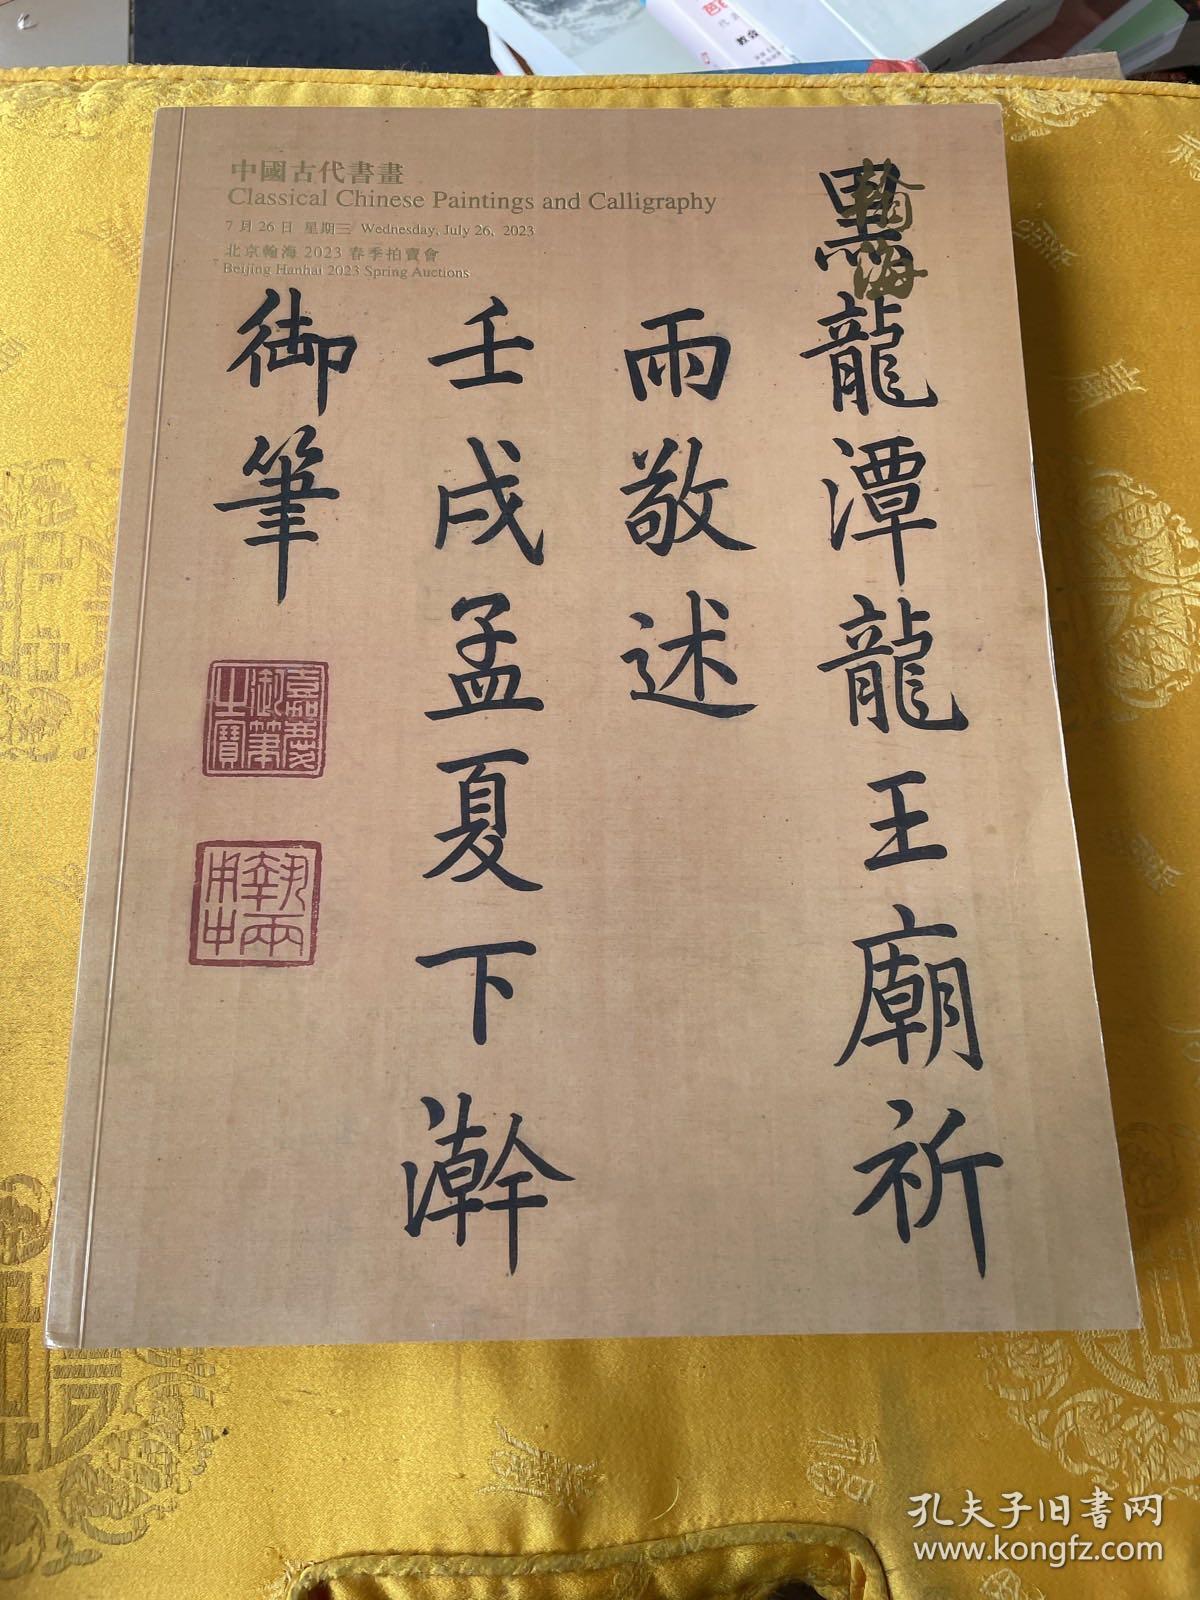 中國古代書畫
Classical Chinese Paintings and Calligraphy
7月26日 星期三/ Wednesday, July 26, 2023
北京翰海 2023 春季拍賣會
Beijing Hanhai 2023 Spring Auctions
翰海
黑龍潭龍王廟祈
雨敬述
壬戌孟夏下澣
御筆
嘉慶
御筆
之寶
執兩
用中
孔夫子旧书网
www.kongfz.com